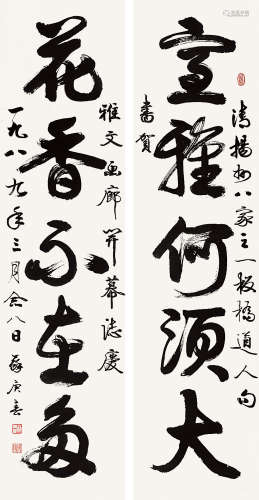 清揚州八家之一板橋道人句
室雅何須大
書賀
雅文画廊開幕誌慶
花香不在多
一九八九年三月念八日蘇庚春